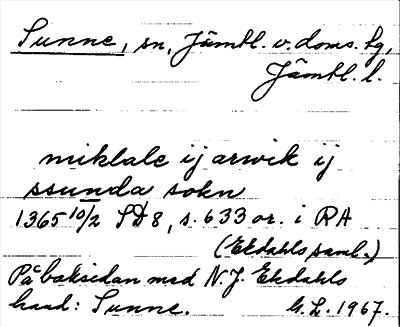 Sunne, sn, Jämtl. v. doms. hg,
Jämtl. l.
miklale ij arwik ij
ssunda sokn
1365 10/2 SD 8, s. 633 or. i RA
(Ekdahls saml.)
På baksidan med N. J. Ekdahls
hand: Sunne. G. L. 1967.